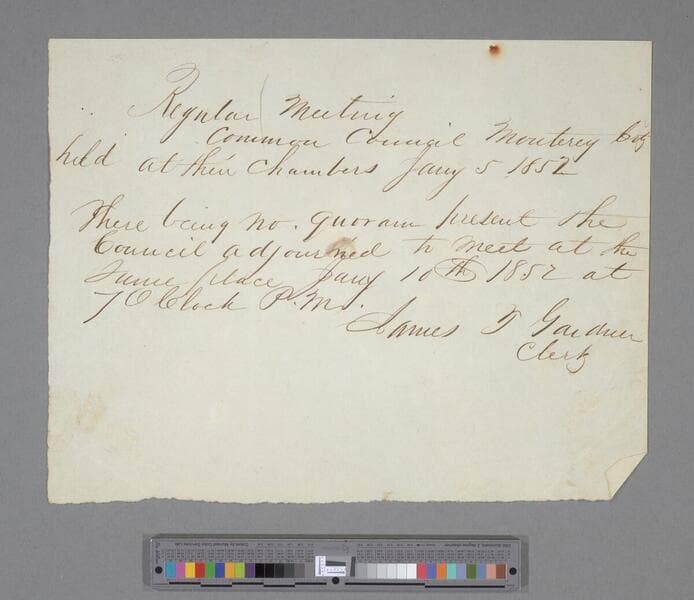 Regular Meeting
Common Council Monterey City
held at their Chambers Jany 5 1852
There being no. quoram present the
Council adjourned to meet at the
Same place Jany 10th 1852 at
7 O Clock P.M.
James T Gardner
Clerk